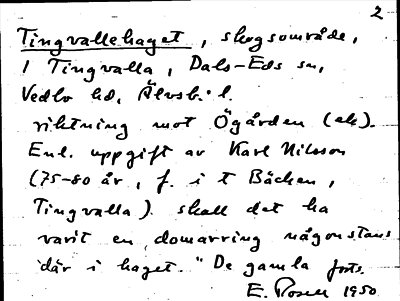 2
Tingvallehaget, skogsområde,
i Tingvalla, Dals-Eds sn,
Vedbo hd, Älvsb. l.
riktning mot Ögården (ak).
Enl. uppgift av Karl Nilsson
(75-80 år, f. i t Bäcken,
Tingvalla). skall det ha
varit en domarring någonstans
där i haget. "De gamla forts.
E. Rosell 1950